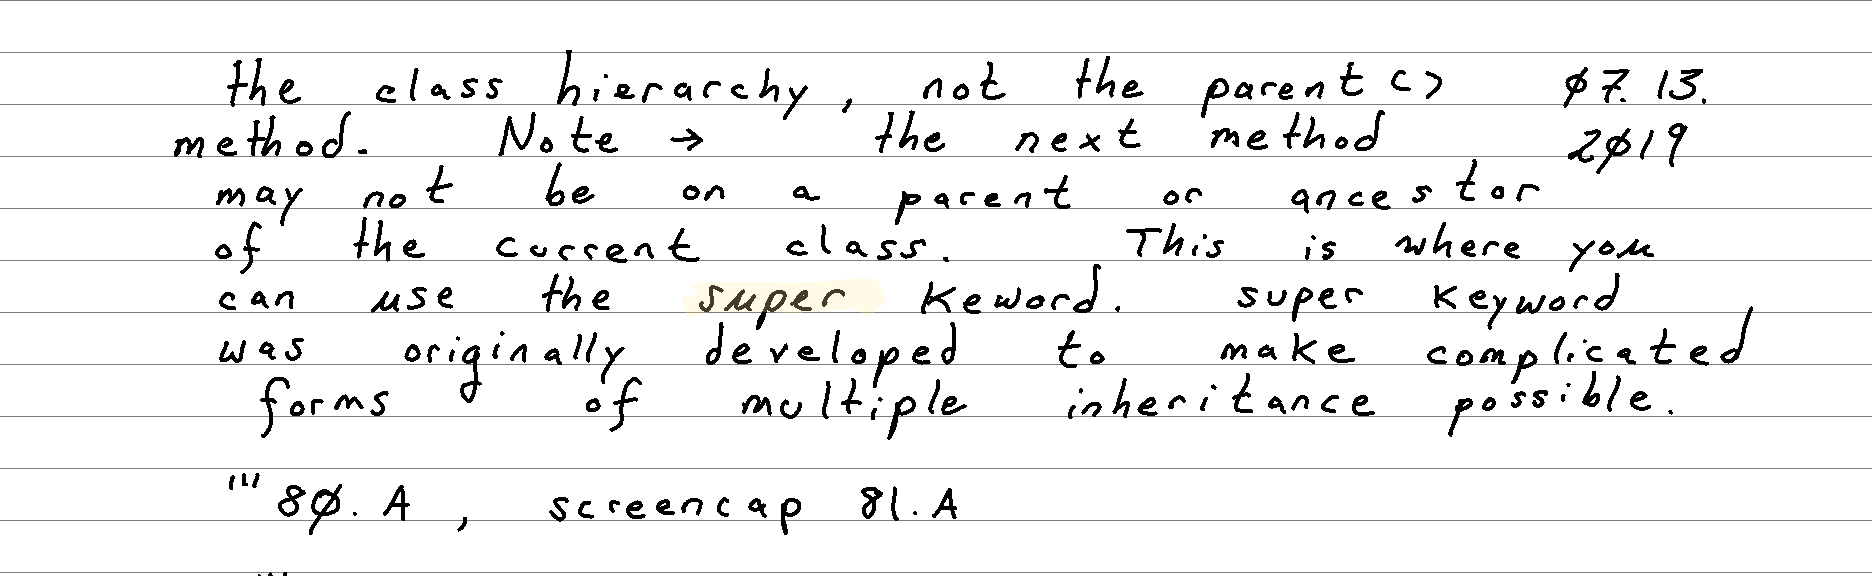 the class hierarchy, not the parent() ø7.13.
method. Note → the next method 2ø19
may not be on a parent or ancestor
of the current class. This is where you
can use the super Keword. super Keyword
was originally developed to make complicated
forms of multiple inheritance possible.
''' 8ø.A, screencap 81.A